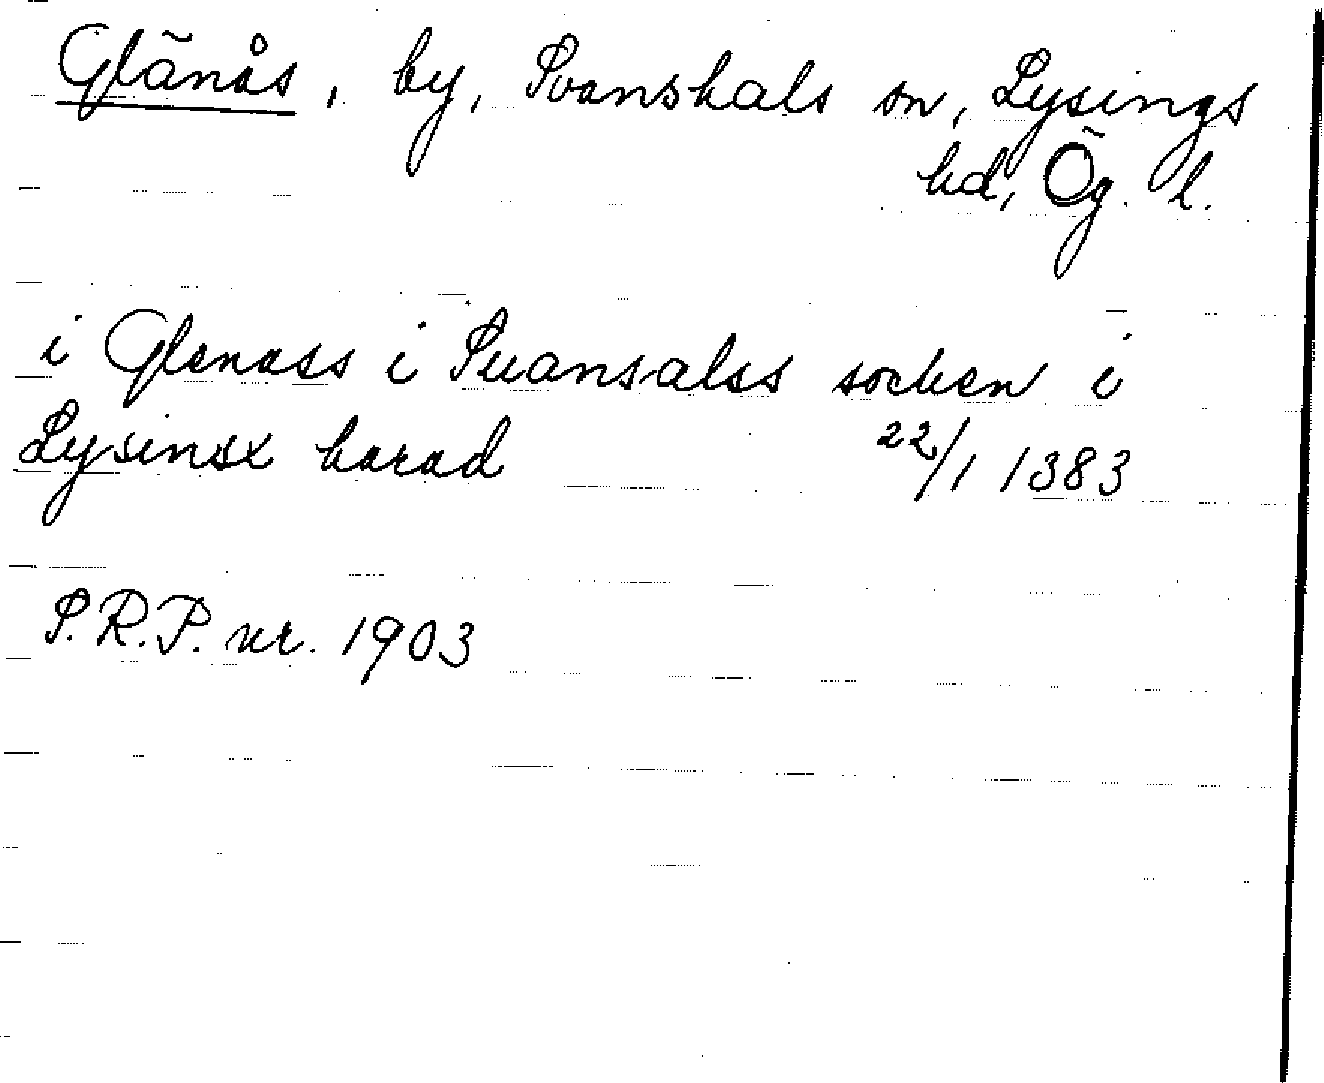 Glänås, by, Svanshals sn, Lysings
hd, Ög. l.
i Glenass i Suansalss socken i
Lysinsx harad 22/1 1383
S.R.P. nr. 1903